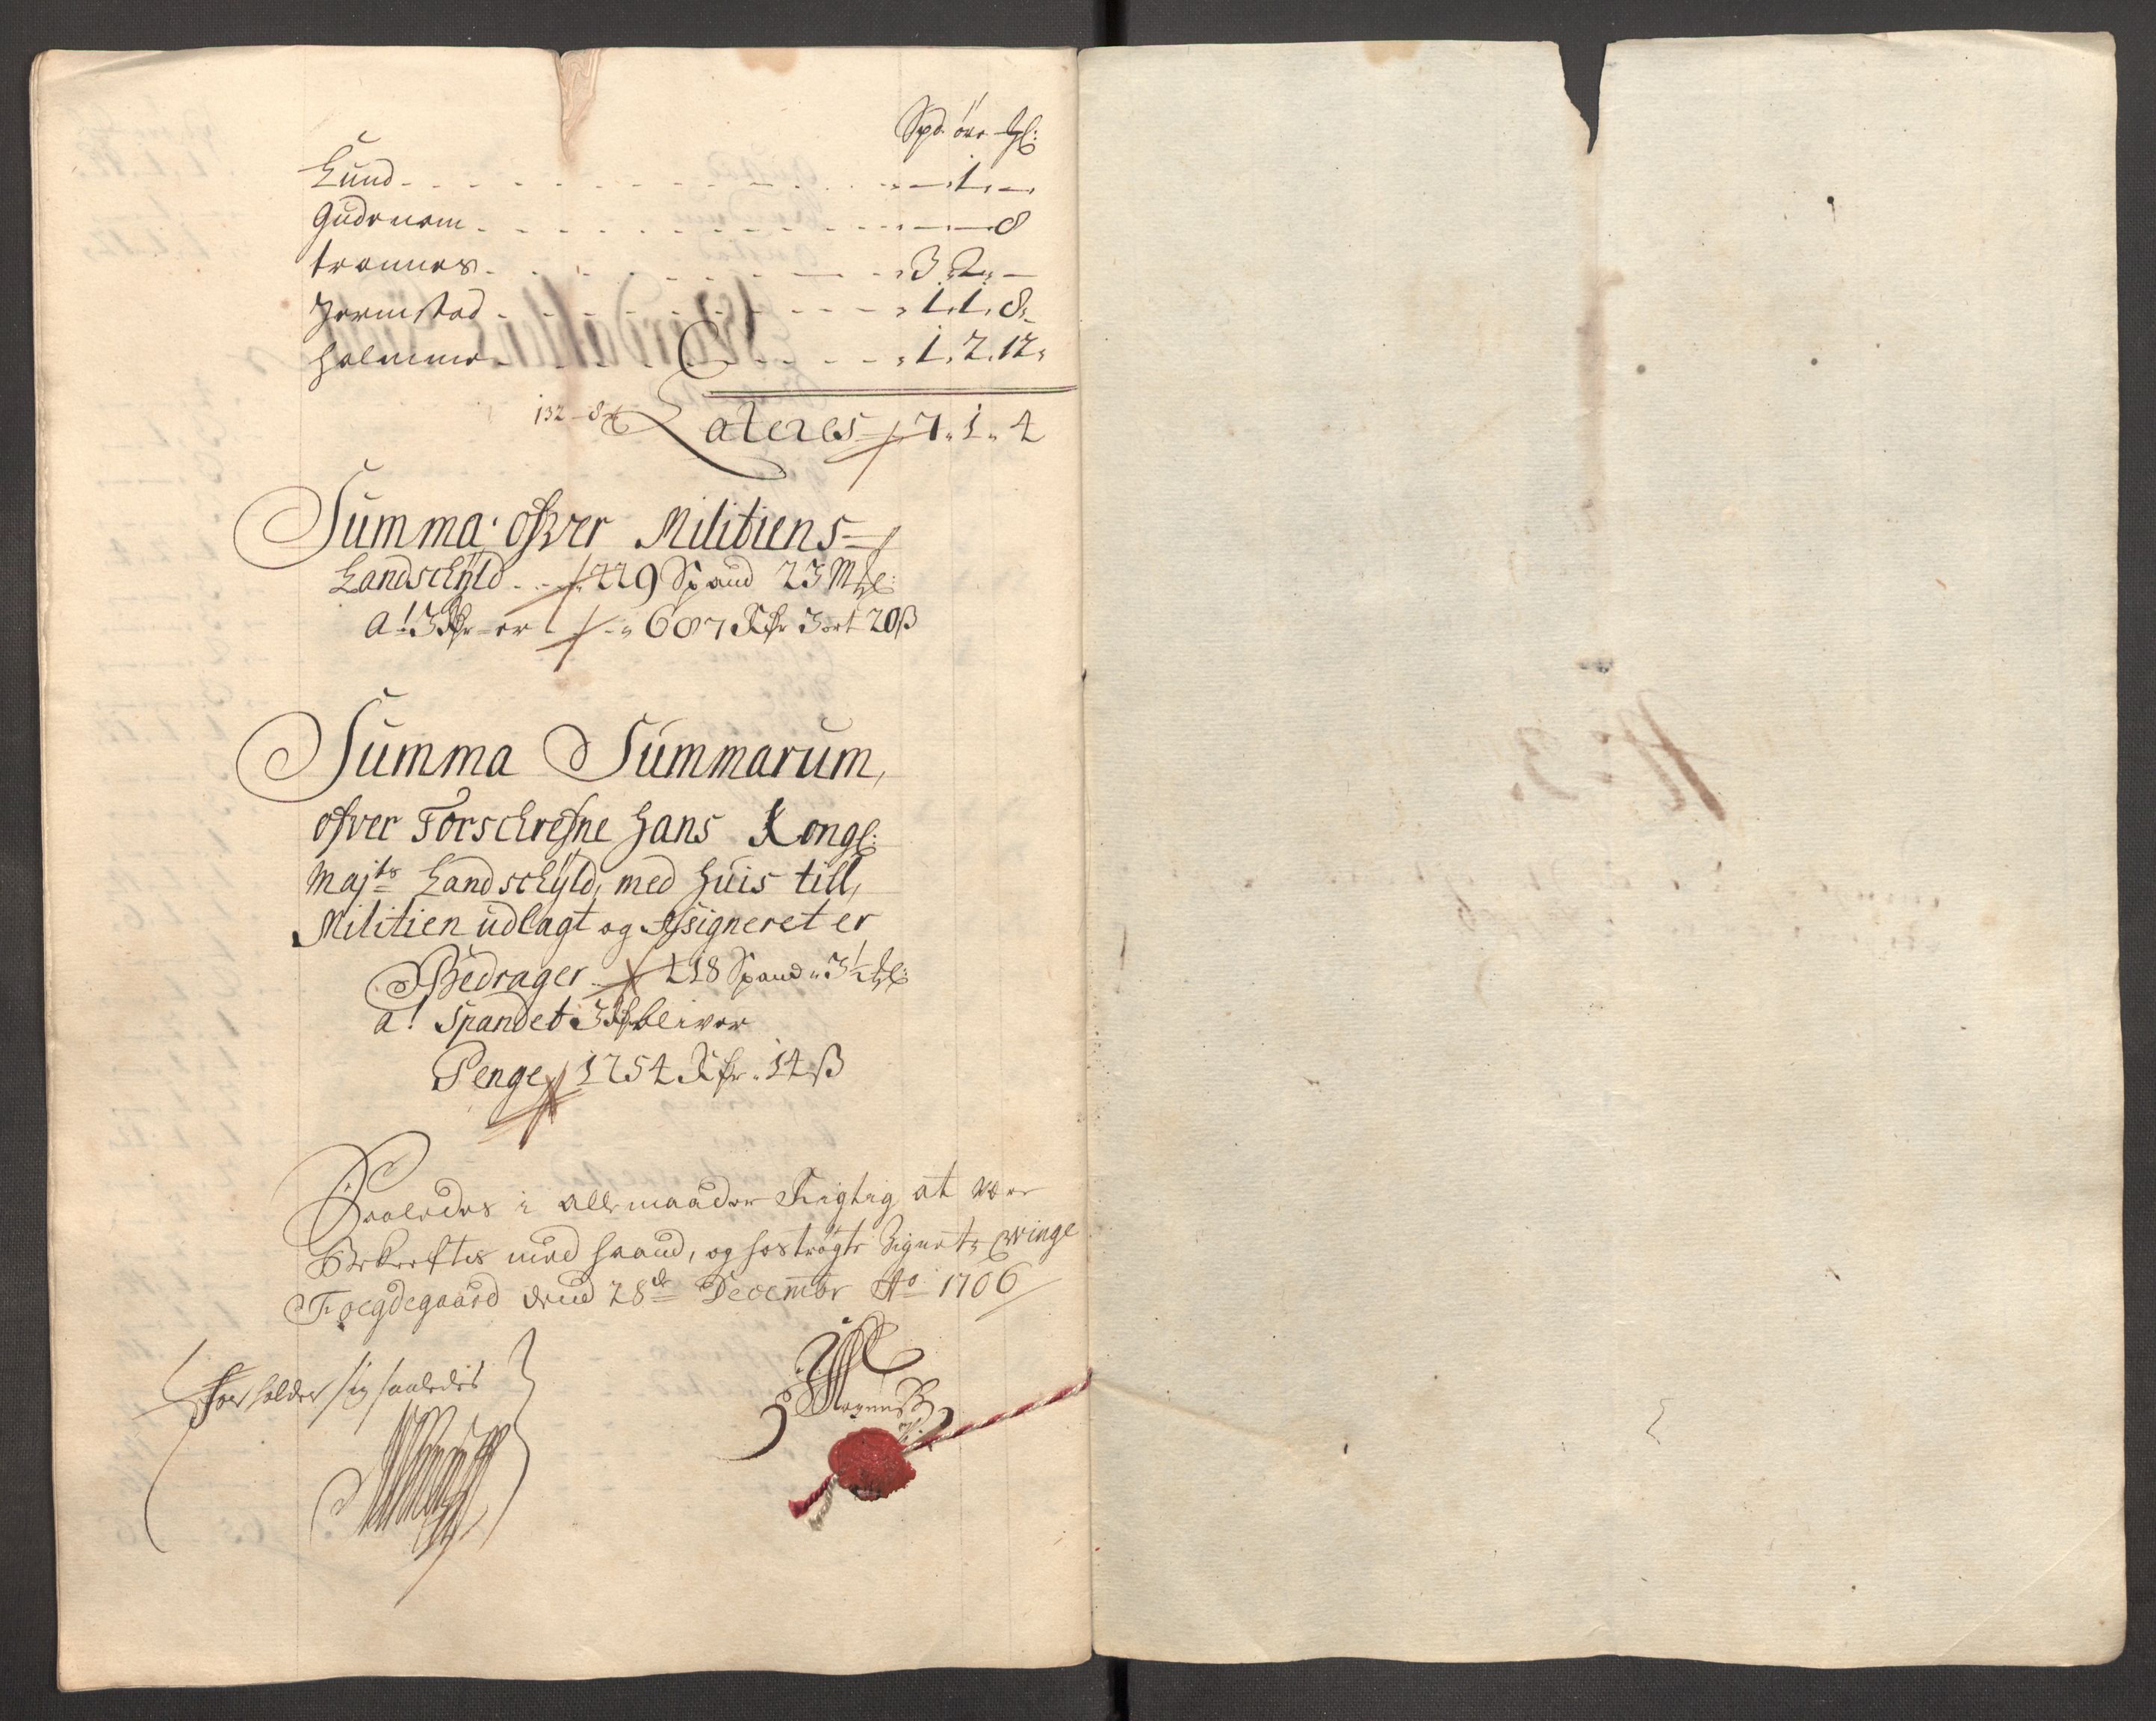 Spd. ører Ml:
Lund - - - 1 -
Gudenem - - - 8
trönnes - - 3. 2. -
Jermstad - - 1. 1. 8.
Halmmo - - 1. 2. 12.
132 - 8
Lateres 7. 1. 4
Summa ofver Militiens
Landschÿld - 229 Spand 23 Ml:
a! 3 Rdr er - 687 Rdr 3 ort 20 ß
Summa Summarum,
ofver Forschrefne Hans Kongl:
Majts Landschÿld, med huis till,
Militien udlagt og Assigneret er
Bedrager 418 Spand 3½ Ml:
a! Spandet 3 Rdr bliver
Penge 1254 Rdr. 14 ß
Saaledes i alle maader Rigtig at være
Bekreftes med haand, og hostrøgte Zignete, Winge
Foegdegaard dend 28de Decembr Ao 1706
Forholder sig saaledis
No 3.